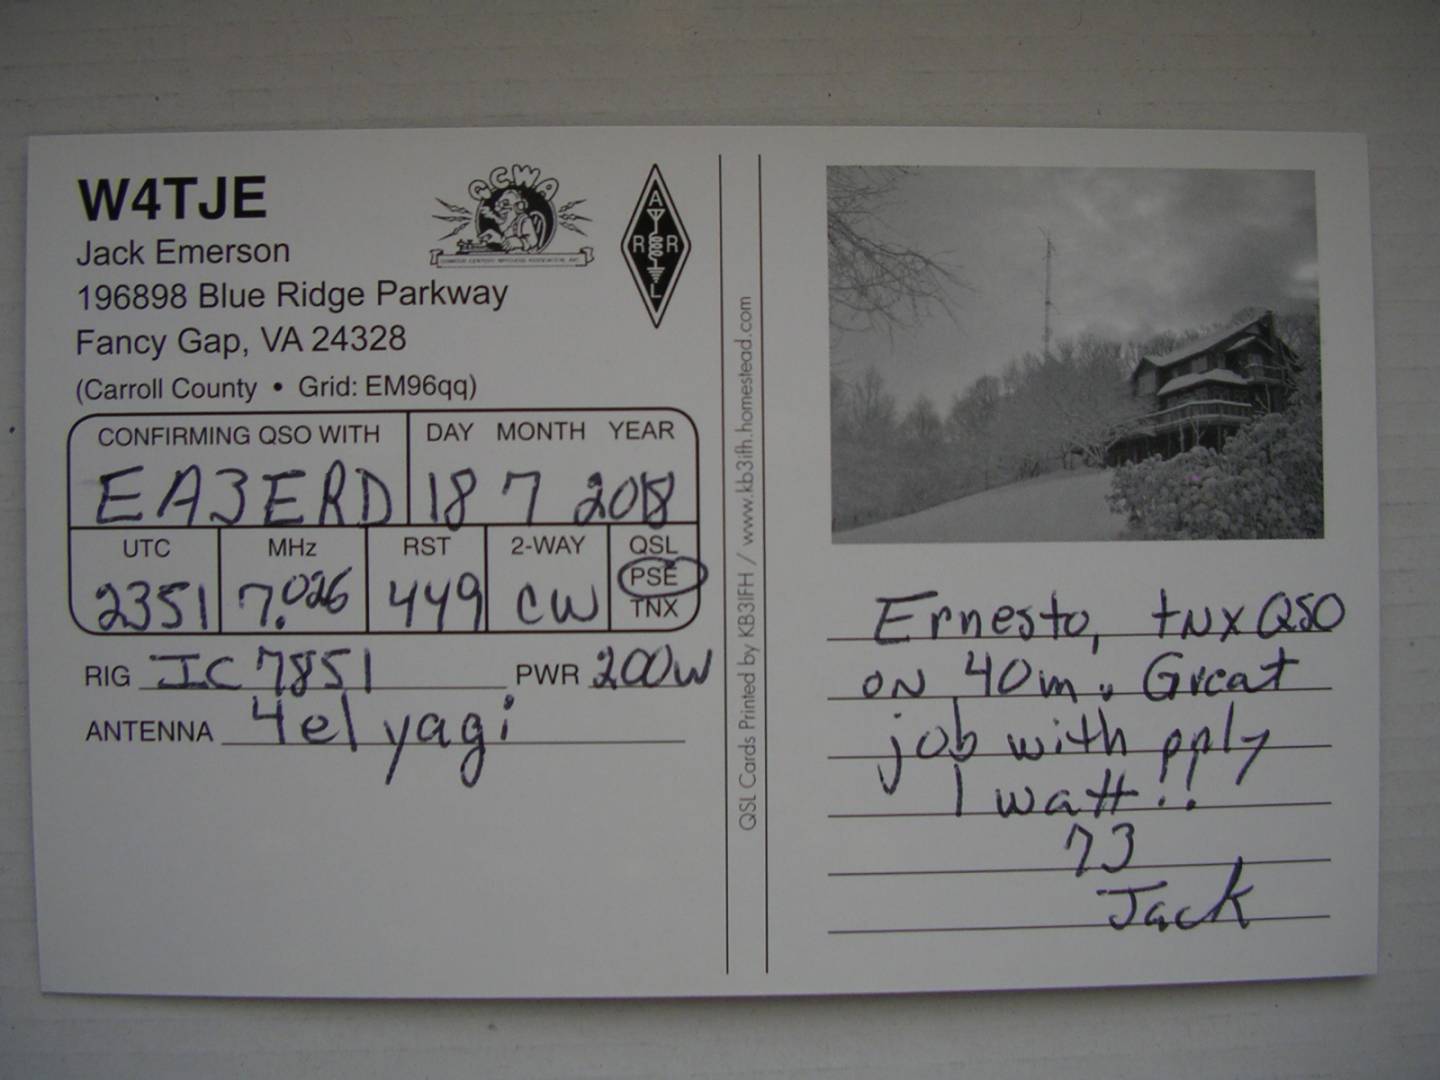 W4TJE
Jack Emerson
196898 Blue Ridge Parkway
Fancy Gap, VA 24328
(Carroll County • Grid: EM96qq)
QCWA
QUARTER CENTURY WIRELESS ASSOCIATION, INC.
A
R R
L
CONFIRMING QSO WITH DAY MONTH YEAR
EA3ERD 18 7 2018
UTC MHz RST 2-WAY QSL
PSE
2351 7.026 449 CW TNX
RIG IC 7851 PWR 200W
ANTENNA 4el yagi
QSL Cards Printed by KB3IFH / www.kb3ifh.homestead.com
Ernesto, tNX QSO
ON 40m. Great
job with only
1 watt!!
73
Jack